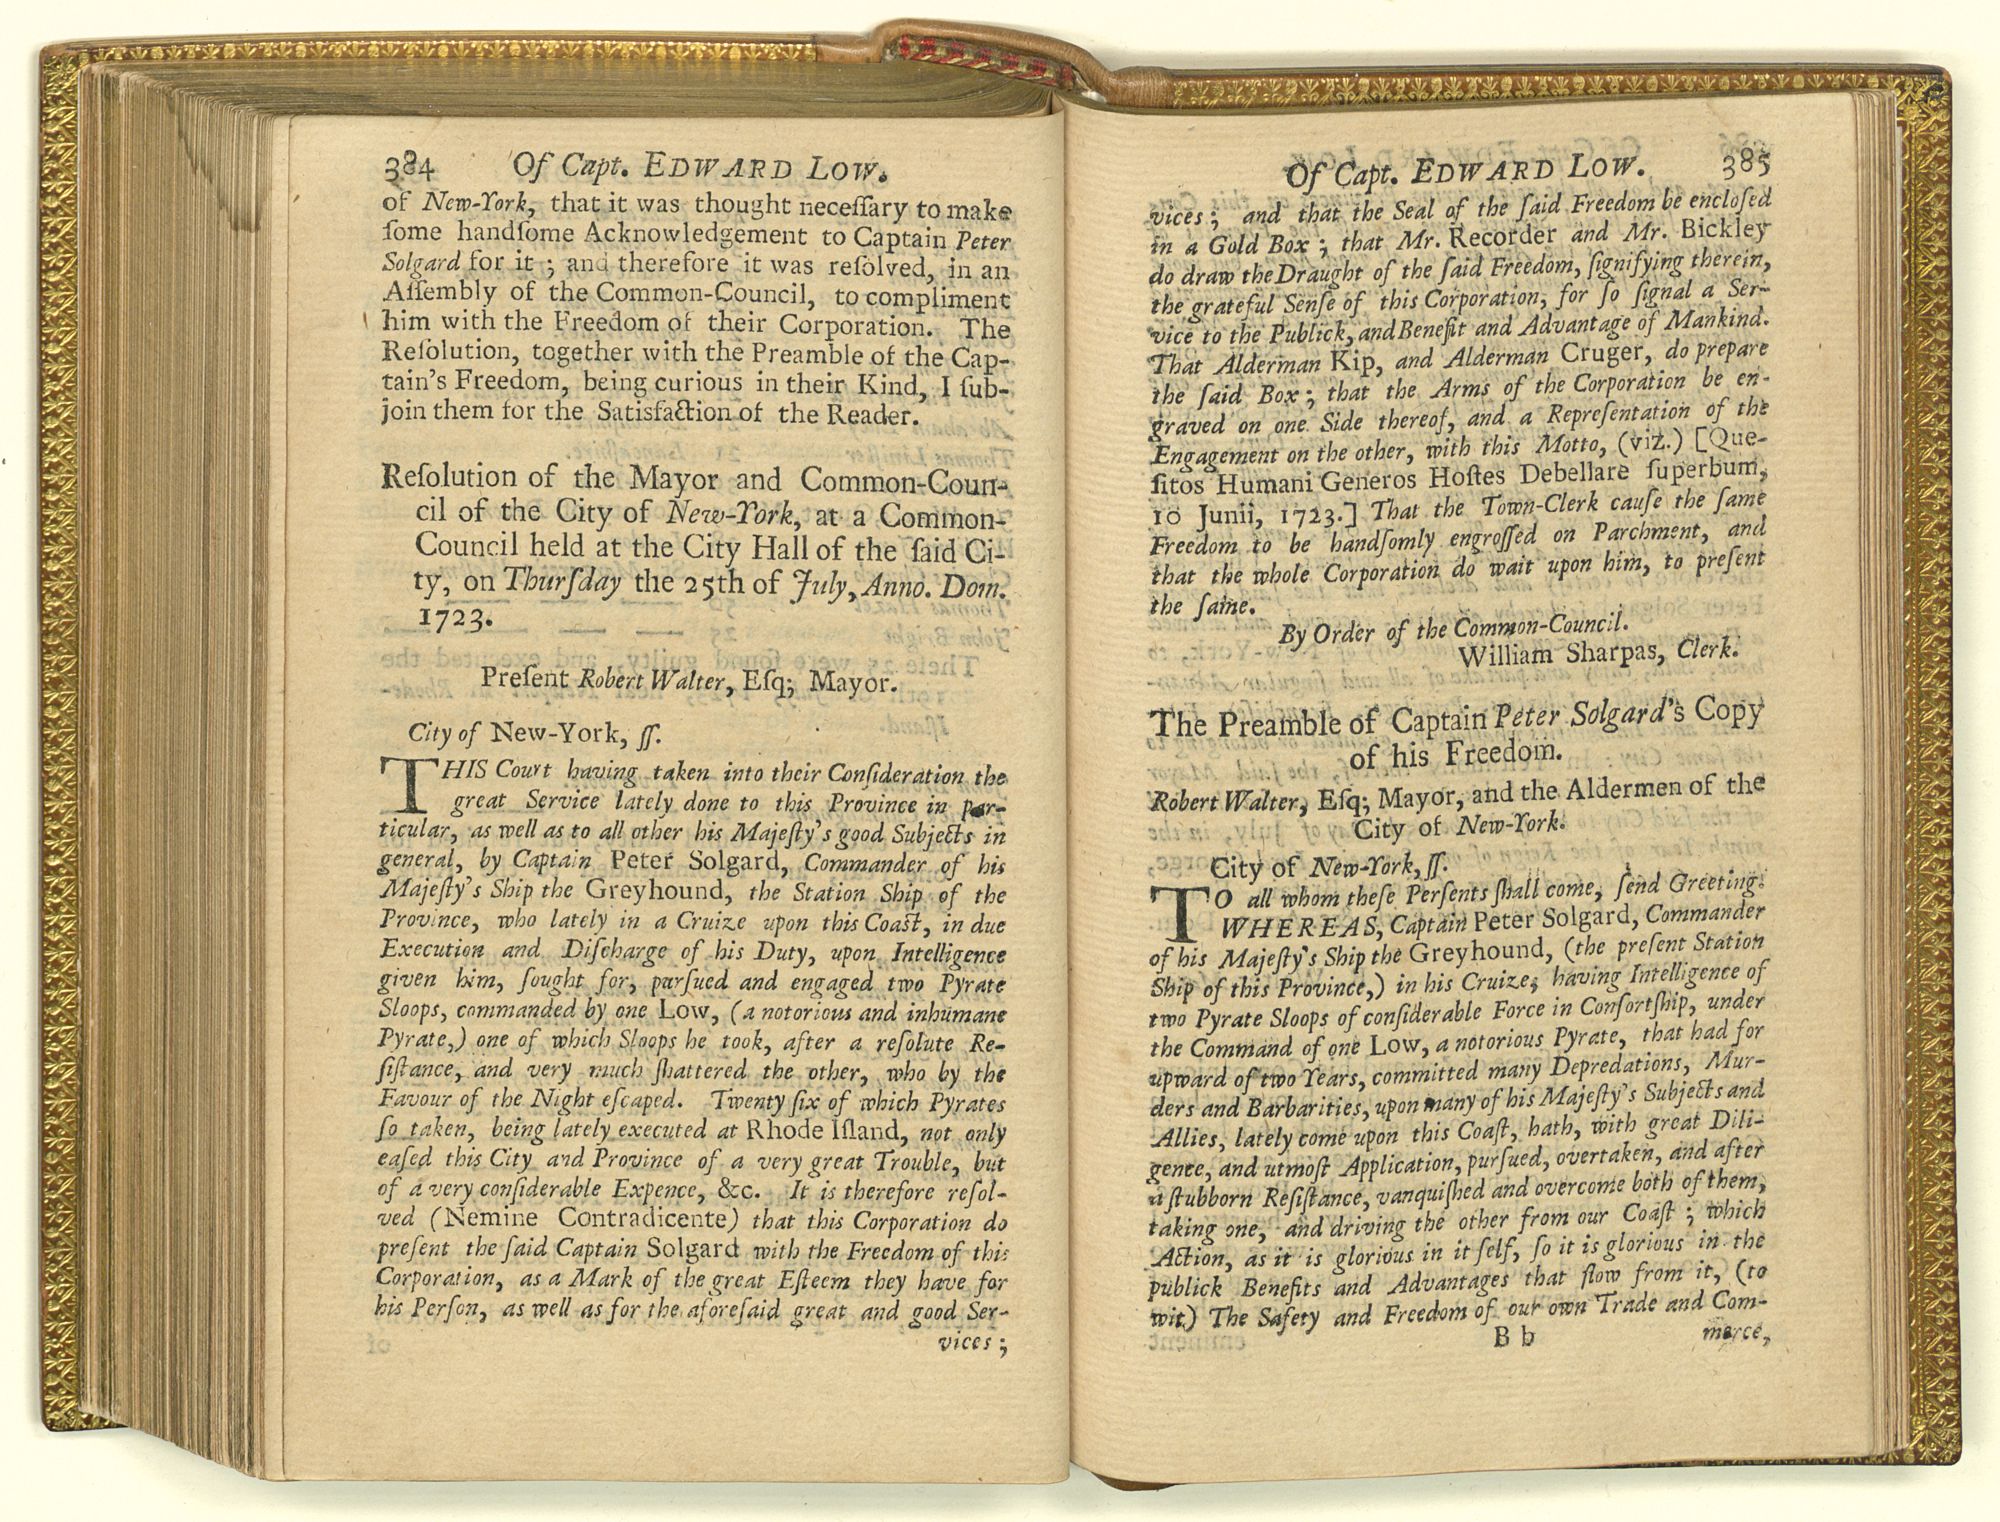 384 Of Capt. EDWARD LOW.
of New-York, that it was thought neceſſary to make
ſome handſome Acknowledgement to Captain Peter
Solgard for it ; and therefore it was reſolved, in an
Aſſembly of the Common-Council, to compliment
him with the Freedom of their Corporation. The
Reſolution, together with the Preamble of the Cap-
tain's Freedom, being curious in their Kind, I ſub-
join them for the Satisfaction of the Reader.
Reſolution of the Mayor and Common-Coun-
cil of the City of New-York, at a Common-
Council held at the City Hall of the ſaid Ci-
ty, on Thurſday the 25th of July, Anno. Dom.
1723.
Preſent Robert Walter, Eſq; Mayor.
City of New-York, ſſ.
THIS Court having taken into their Conſideration the
great Service lately done to this Province in par-
ticular, as well as to all other his Majeſty's good Subjects in
general, by Captain Peter Solgard, Commander of his
Majeſty's Ship the Greyhound, the Station Ship of the
Province, who lately in a Cruize upon this Coaſt, in due
Execution and Diſcharge of his Duty, upon Intelligence
given him, ſought for, purſued and engaged two Pyrate
Sloops, commanded by one Low, (a notorious and inhumane
Pyrate,) one of which Sloops he took, after a reſolute Re-
ſiſtance, and very much ſhattered the other, who by the
Favour of the Night eſcaped. Twenty ſix of which Pyrates
ſo taken, being lately executed at Rhode Iſland, not only
eaſed this City and Province of a very great Trouble, but
of a very conſiderable Expence, &c. It is therefore reſol-
ved (Nemine Contradicente) that this Corporation do
preſent the ſaid Captain Solgard with the Freedom of this
Corporation, as a Mark of the great Eſteem they have for
his Perſon, as well as for the aforeſaid great and good Ser-
vices ;
Of Capt. EDWARD LOW. 385
vices ; and that the Seal of the ſaid Freedom be encloſed
in a Gold Box ; that Mr. Recorder and Mr. Bickley
do draw the Draught of the ſaid Freedom, ſignifying therein,
the grateful Senſe of this Corporation, for ſo ſignal a Ser-
vice to the Publick, and Benefit and Advantage of Mankind.
That Alderman Kip, and Alderman Cruger, do prepare
the ſaid Box ; that the Arms of the Corporation be en-
graved on one Side thereof, and a Repreſentation of the
Engagement on the other, with this Motto, (viz.) [Que-
ſitos Humani Generos Hoſtes Debellare ſuperbum,
10 Junii, 1723.] That the Town-Clerk cauſe the ſame
Freedom to be handſomly engroſſed on Parchment, and
that the whole Corporation do wait upon him, to preſent
the ſame.
By Order of the Common-Council.
William Sharpas, Clerk.
The Preamble of Captain Peter Solgard's Copy
of his Freedom.
Robert Walter, Eſq; Mayor, and the Aldermen of the
City of New-York.
City of New-York, ſſ.
TO all whom theſe Perſents ſhall come, ſend Greeting.
WHEREAS, Captain Peter Solgard, Commander
of his Majeſty's Ship the Greyhound, (the preſent Station
Ship of this Province,) in his Cruize, having Intelligence of
two Pyrate Sloops of conſiderable Force in Conſortſhip, under
the Command of one Low, a notorious Pyrate, that had for
upward of two Years, committed many Depredations, Mur-
ders and Barbarities, upon many of his Majeſty's Subjects and
Allies, lately come upon this Coaſt, hath, with great Dili-
gence, and utmoſt Application, purſued, overtaken, and after
a ſtubborn Reſiſtance, vanquiſhed and overcome both of them,
taking one, and driving the other from our Coaſt ; which
Action, as it is glorious in it ſelf, ſo it is glorious in the
publick Benefits and Advantages that flow from it, (to
wit) The Safety and Freedom of our own Trade and Com-
B b merce,